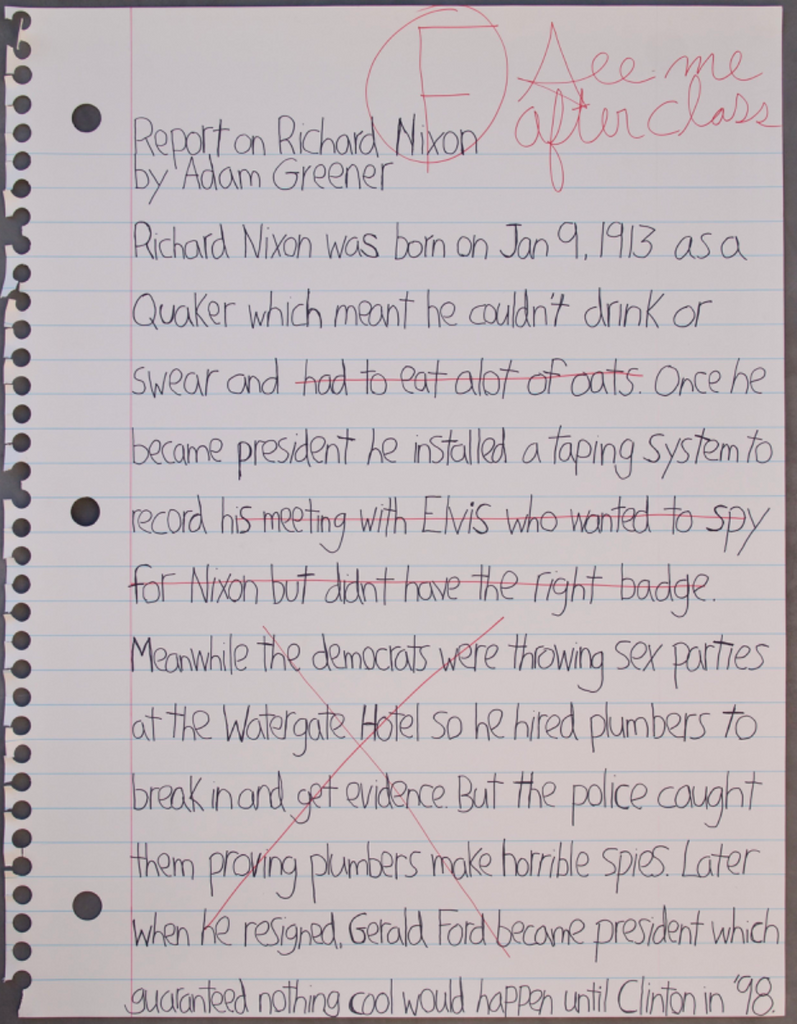 F See me
after class
Report on Richard Nixon
by Adam Greener
Richard Nixon was born on Jan 9, 1913 as a
Quaker which meant he couldn't drink or
swear and had to eat alot of oats. Once he
became president he installed a taping system to
record his meeting with Elvis who wanted to spy
for Nixon but didnt have the right badge.
Meanwhile the democrats were throwing sex parties
at the Watergate Hotel so he hired plumbers to
break in and get evidence. But the police caught
them proving plumbers make horrible spies. Later
when he resigned, Gerald Ford became president which
guaranteed nothing cool would happen until Clinton in '98.